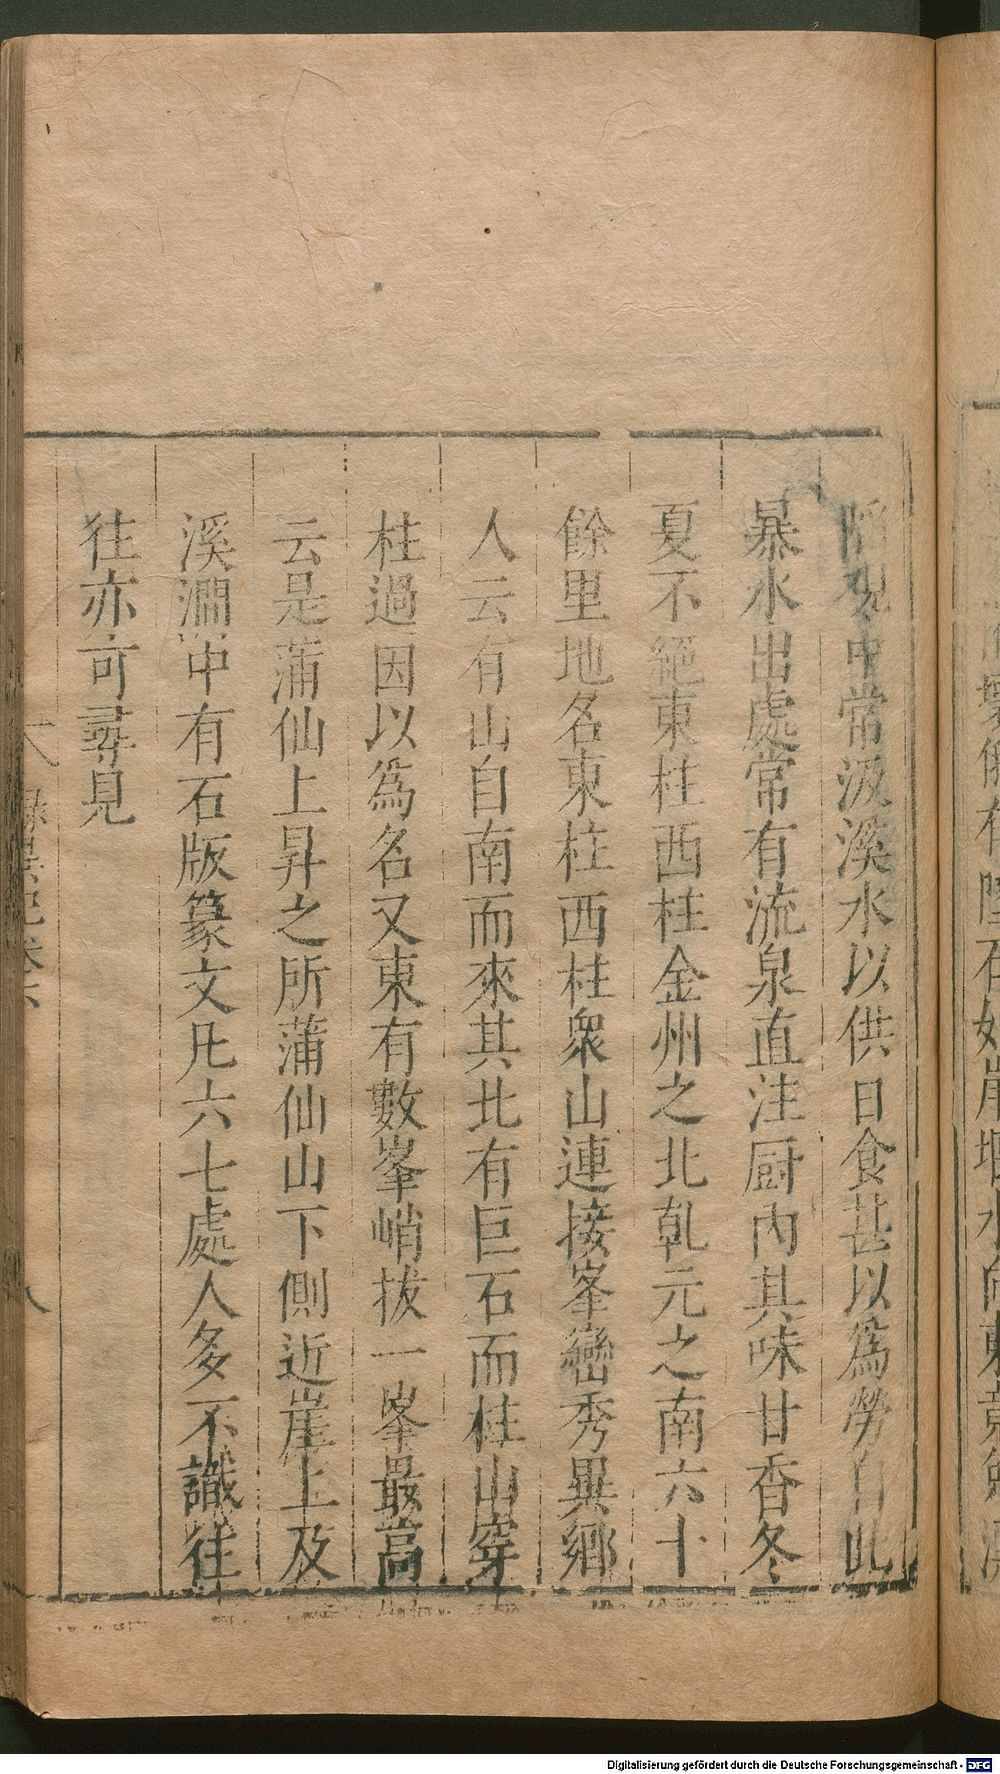 中常汲溪水以供日食甚以爲勞自此
暴水出處常有流泉直注厨内其味甘香冬
夏不絕東柱西柱金州之北乹元之南六十
餘里地名東柱西柱衆山連接峯巒秀異鄉
人云有山自南而來其北有巨石而柱山穿
柱過因以爲名又東有數峯峭拔一峯最高
云是蒲仙上昇之所蒲仙山下側近崖上及
溪澗中有石版篆文凡六七處人多不識往
往亦可尋見
八
Digitalisierung gefördert durch die Deutsche Forschungsgemeinschaft - DFG